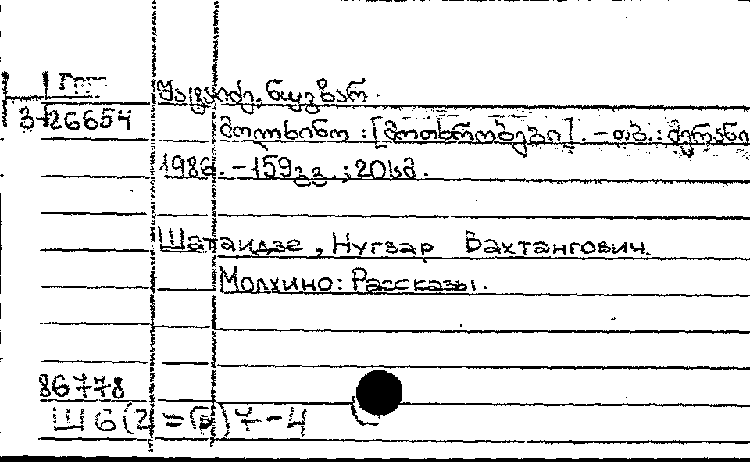 შატაიძე, ნუგზარ.
3-26654
მოლხინო : [მოთხრობები]. – თბ. : მერანი
1986. – 159გვ. ; 20სმ.
Шатаидзе, Нугзар Вахтангович.
Молхино: Рассказы.
86778
Ш6(2=Გ)7-4